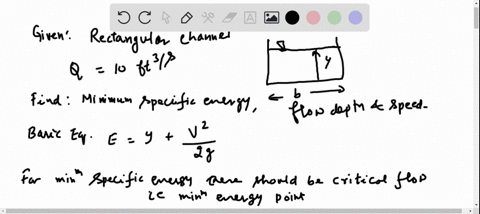 Given: Rectangular channel
Q = 10 ft³/s
y
b
Find: Minimum specific energy, flow depth & speed.
Basic Eq. E = y + V²/2g
For minᵐ specific energy there should be critical flow
ie minᵐ energy point